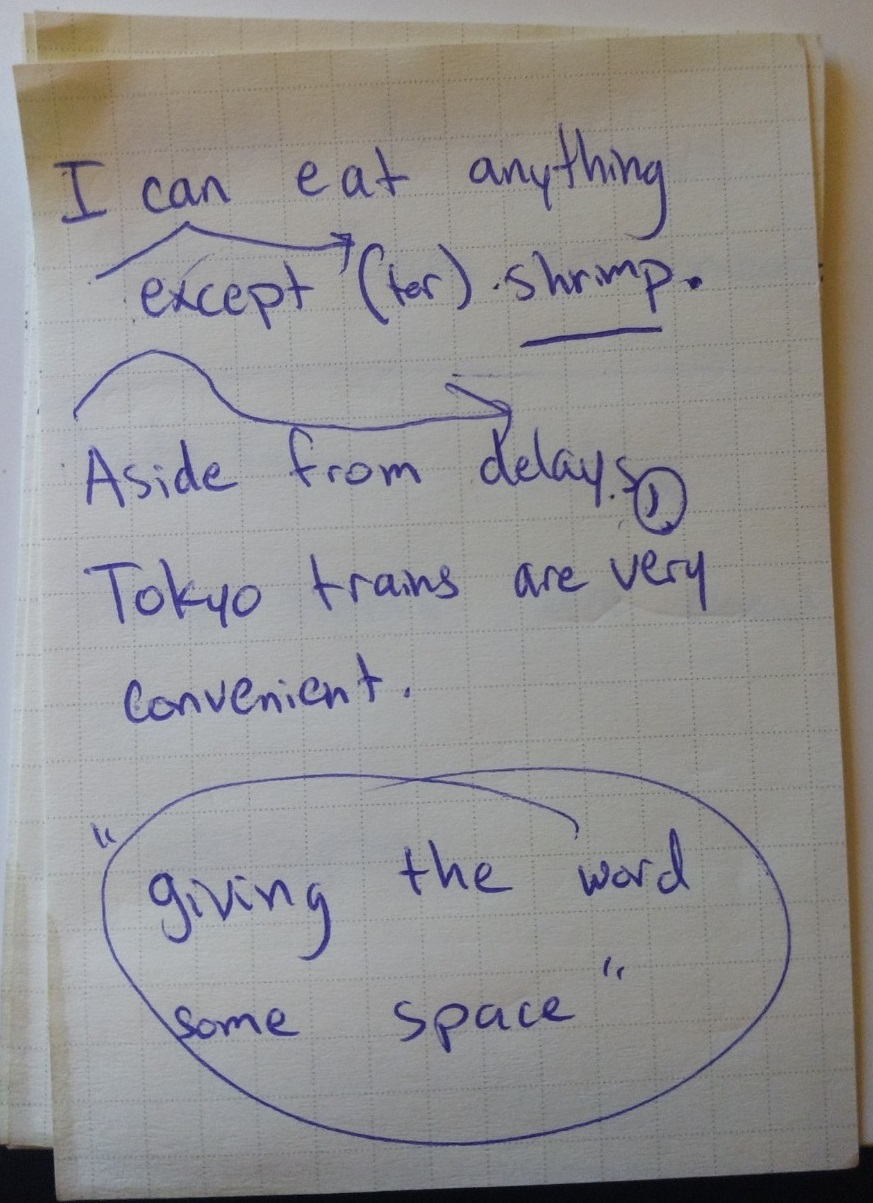 I can eat anything
except (for) shrimp.
Aside from delays,
Tokyo trains are very
convenient.
"giving the word
some space"